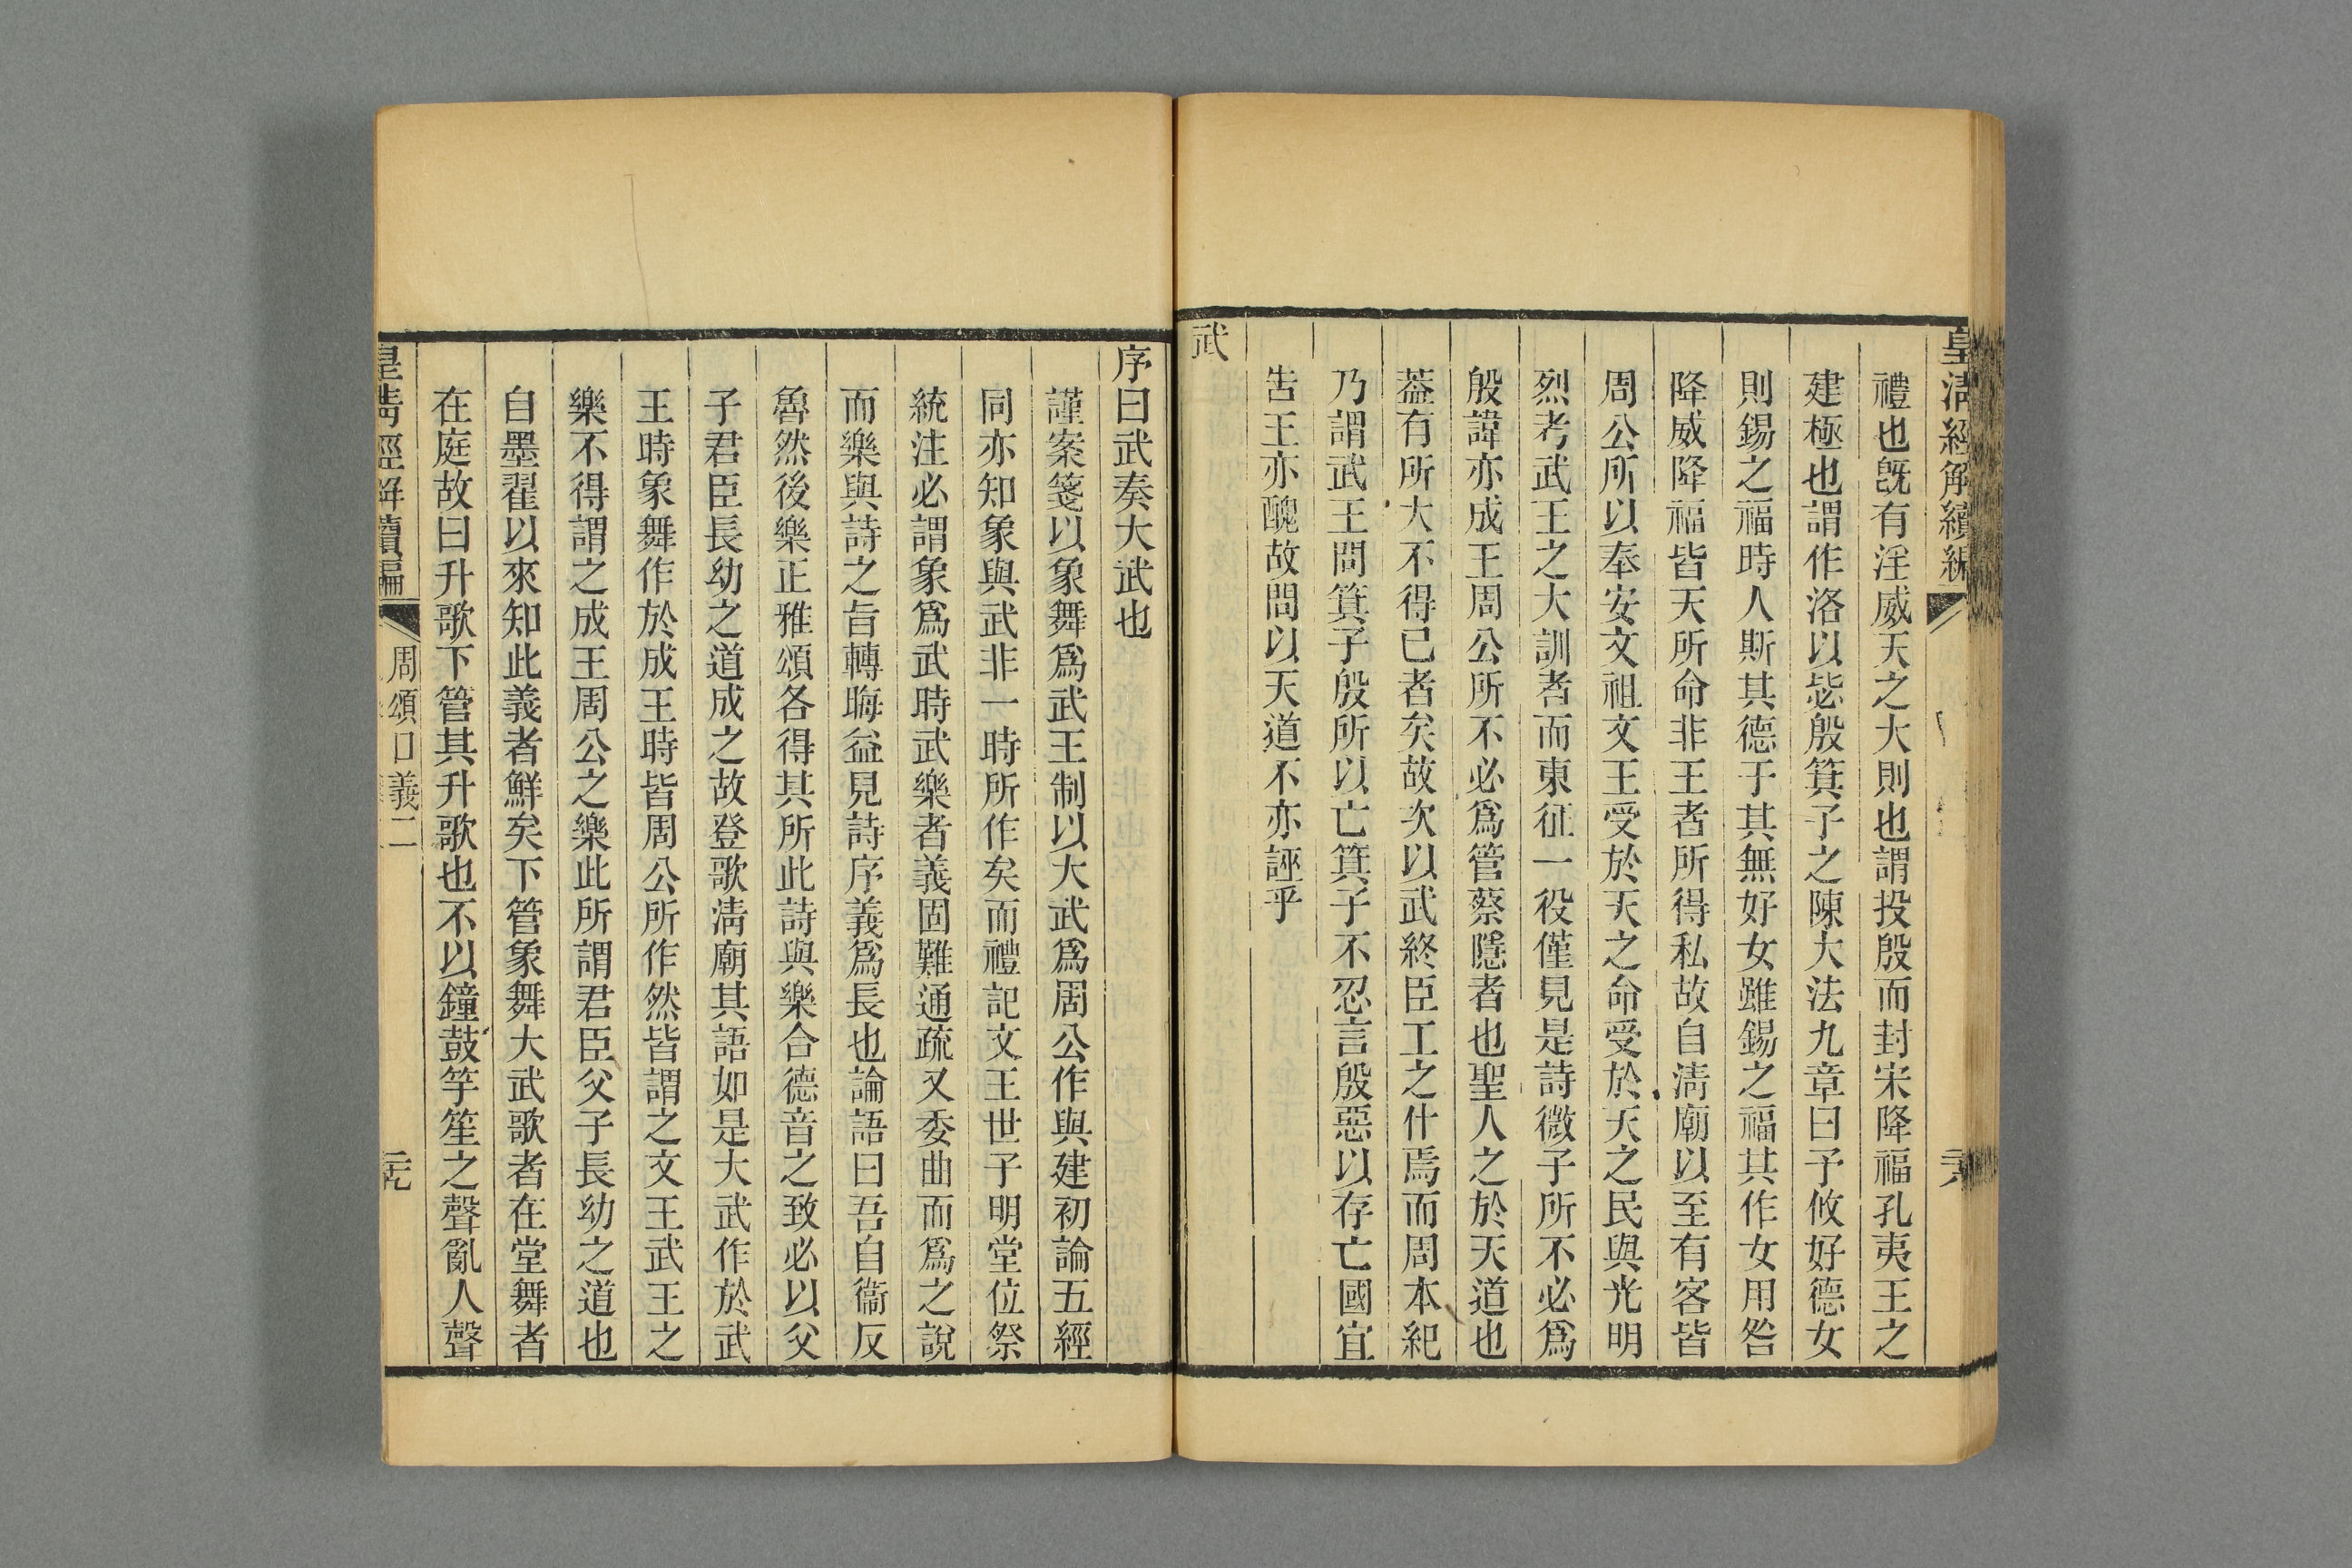 皇清經解續編
禮也旣有淫威天之大則也謂投殷而封宋降福孔夷王之
建極也謂作洛以毖殷箕子之陳大法九章曰予攸好德女
則錫之福時人斯其德于其無好女雖錫之福其作女用咎
降威降福皆天所命非王者所得私故自淸廟以至有客皆
周公所以奉安文祖文王受於天之命受於天之民與光明
烈考武王之大訓者而東征一役僅見是詩微子所不必爲
殷諱亦成王周公所不必爲管蔡隱者也聖人之於天道也
葢有所大不得已者矣故次以武終臣工之什焉而周本紀
乃謂武王問箕子殷所以亡箕子不忍言殷惡以存亡國宜
告王亦醜故問以天道不亦誣乎
武
序曰武奏大武也
謹案箋以象舞爲武王制以大武爲周公作與建初論五經
同亦知象與武非一時所作矣而禮記文王世子明堂位祭
統注必謂象爲武時武樂者義固難通疏又委曲而爲之說
而樂與詩之旨轉晦益見詩序義爲長也論語曰吾自衞反
魯然後樂正雅頌各得其所此詩與樂合德音之致必以父
子君臣長幼之道成之故登歌淸廟其語如是大武作於武
王時象舞作於成王時皆周公所作然皆謂之文王武王之
樂不得謂之成王周公之樂此所謂君臣父子長幼之道也
自墨翟以來知此義者鮮矣下管象舞大武歌者在堂舞者
在庭故曰升歌下管其升歌也不以鐘鼓竽笙之聲亂人聲
皇淸經解續編
周頌口義二
元